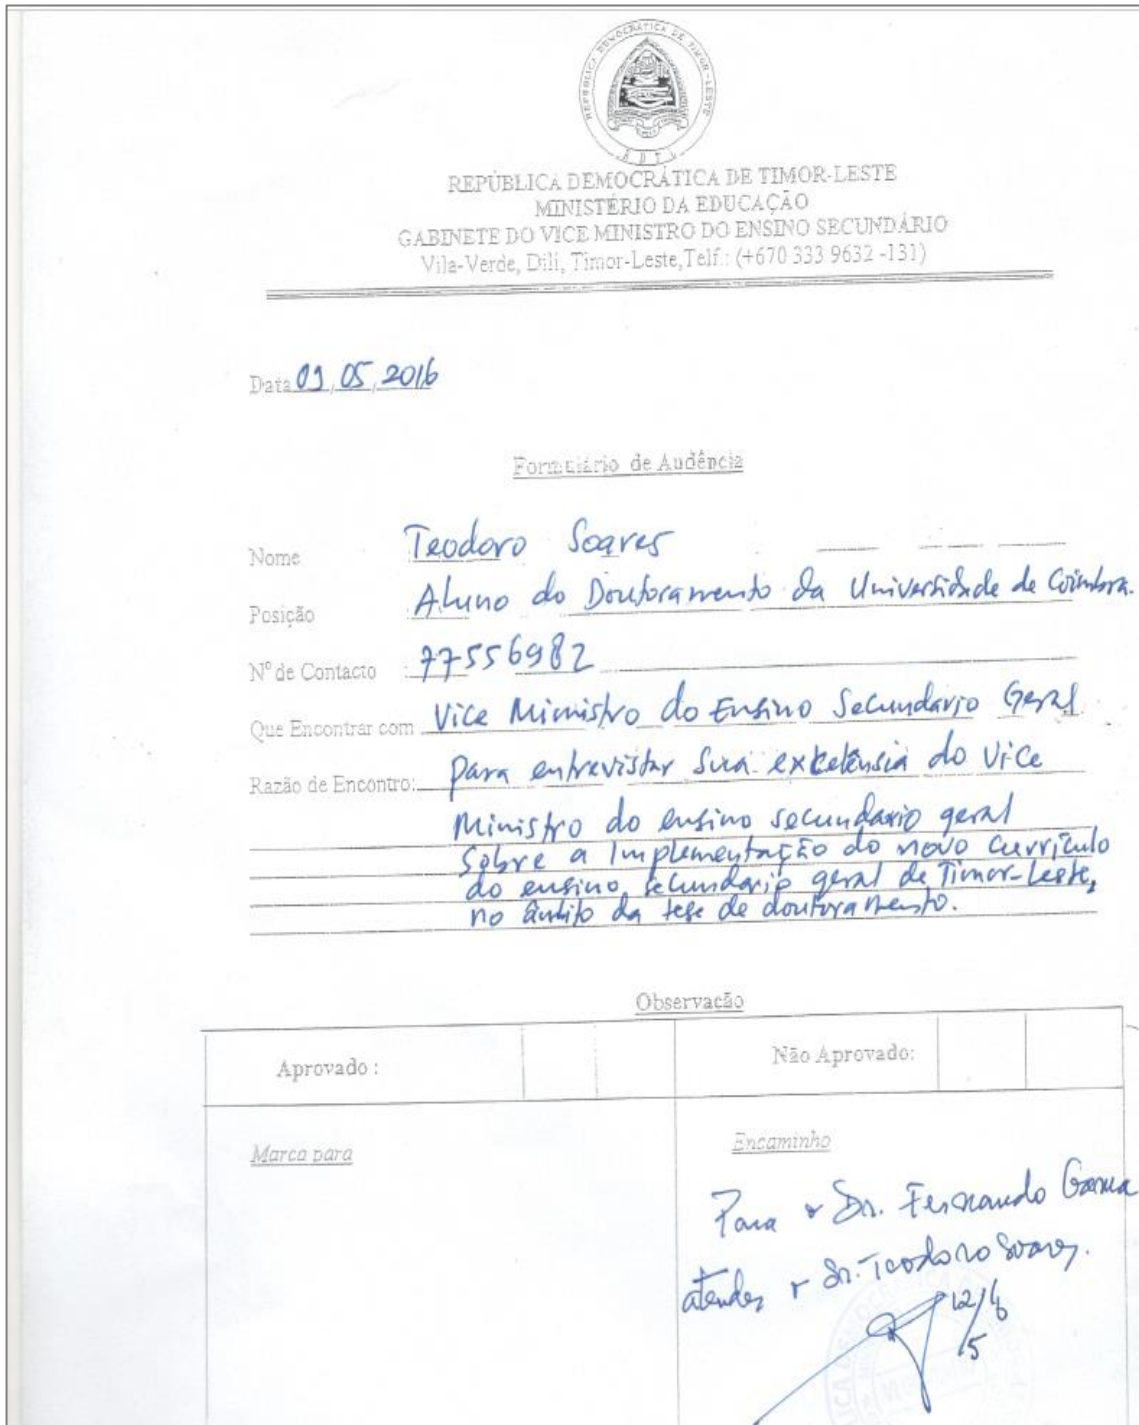 REPÚBLICA DEMOCRÁTICA DE TIMOR-LESTE
R D T L
REPÚBLICA DEMOCRÁTICA DE TIMOR-LESTE
MINISTÉRIO DA EDUCAÇÃO
GABINETE DO VICE MINISTRO DO ENSINO SECUNDÁRIO
Vila-Verde, Dili, Timor-Leste,Telf.: (+670 333 9632 -131)
Data 09,05,2016
Formulário de Audência
Nome Teodoro Soares
Posição Aluno do Doutoramento da Universidade de Coimbra.
Nº de Contacto : 77556982
Que Encontrar com Vice Ministro do Ensino Secundario Geral
Razão de Encontro: para entrevistar sua excelênsia do Vice
Ministro do ensino secundario geral
Sobre a Implementação do novo Currículo
do ensino secundario geral de Timor-Leste,
no âmbito da tese de doutoramento.
Observação
Aprovado : Não Aprovado:
Marca para Encaminho
Para o Dr. Fernando Gama
atender o Sr. Teodoro Soares.
12/5/16